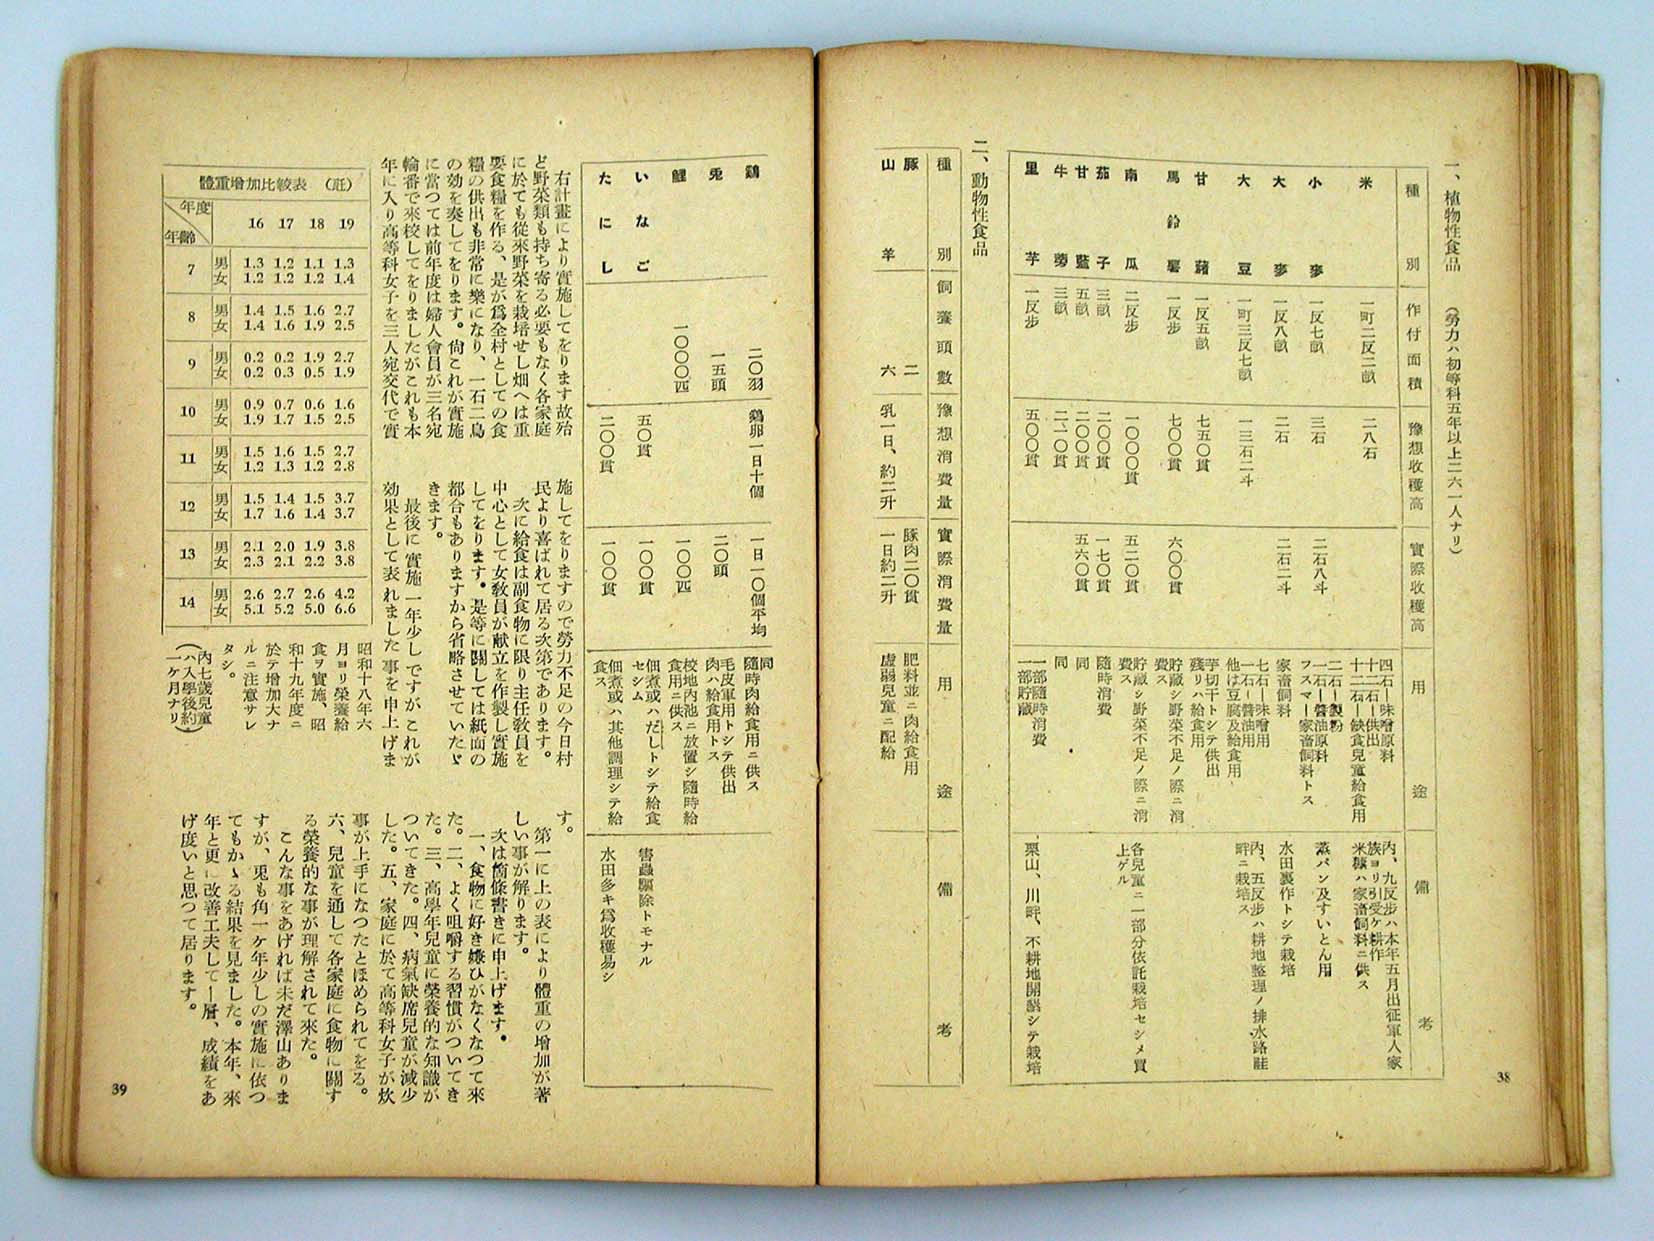 一、植物性食品　（勞力ハ初等科五年以上二六一人ナリ）
種別　作付面積　豫想收穫高　實際收穫高　用途　備考
米　一町二反二畝　二八石　四石ー味噌原料　十二石ー供出　十二石ー缺食兒童給食用　内、九反步ハ本年五月出征軍人家族ヨリ引受ケ耕作　米糠ハ家畜飼料ニ供ス
小麥　一反七畝　三石　二石八斗　二石ー製粉　一石ー醤油原料　フスマー家畜飼料トス　蒸パン及すいとん用
大麥　一反八畝　二石　二石二斗　家畜飼料　水田裏作トシテ栽培
大豆　一町三反七畝　一三石二斗　七石ー味噌用　一石ー醤油用　他は豆腐及給食用　内、五反步ハ耕地整理ノ排水路畦畔ニ栽培ス
甘藷　一反五畝　七五〇貫　芋切干トシテ供出　殘リハ給食用
馬鈴薯　一反步　七〇〇貫　六〇〇貫　貯藏シ野菜不足ノ際ニ消費ス
南瓜　二反步　一〇〇〇貫　五二〇貫　貯藏シ野菜不足ノ際ニ消費ス　各兒童ニ一部分依託栽培セシメ買上ゲル
茄子　三畝　二〇〇貫　一七〇貫　隨時消費
甘藍　五畝　二〇〇貫　五六〇貫　同　同
牛蒡　三畝　二一〇貫　同
里芋　一反步　五〇〇貫　一部隨時消費　一部貯藏　栗山、川畔、不耕地開墾シテ栽培
二、動物性食品
種別　飼養頭數　豫想消費量　實際消費量　用途　備考
豚　二　豚肉二〇貫　肥料並ニ肉給食用
山羊　六　乳一日、約二升　一日約二升　虚弱兒童ニ配給
38
鷄　二〇羽　鷄卵一日十個　一日一〇個平均　同　隨時肉給食用ニ供ス
兎　一五頭　二〇頭　毛皮軍用トシテ供出　肉ハ給食用トス
鯉　一〇〇〇匹　一〇〇匹　校地内池ニ放置シ隨時給食用ニ供ス
いなご　五〇貫　一〇〇貫　佃煮或ハだしトシテ給食セシム　害蟲驅除トモナル
たにし　二〇〇貫　一〇〇貫　佃煮或ハ其他調理シテ給食ス　水田多キ爲收穫易シ
右計畫により實施してをります故殆
ど野菜類も持ち寄る必要もなく各家庭
に於ても從來野菜を栽培せし畑へは重
要食糧を作る、是が爲全村としての食
糧の供出も非常に樂になり、一石二鳥
の効を奏してをります。尙これが實施
に當つては前年度は婦人會員が三名宛
輪番で來校してをりましたがこれも本
年に入り高等科女子を三人宛交代で實
施してをりますので勞力不足の今日村
民より喜ばれて居る次第であります。
次に給食は副食物に限り主任敎員を
中心として女敎員が献立を作製し實施
してをります。是等に關しては紙面の
都合もありますから省略させていたゞ
きます。
最後に實施一年少しですがこれが
効果として表れました事を申上げま
す。
體重増加比較表　（瓩）
年度　年齡　16　17　18　19
7　男　1.3　1.2　1.1　1.3
女　1.2　1.2　1.2　1.4
8　男　1.4　1.5　1.6　2.7
女　1.4　1.6　1.9　2.5
9　男　0.2　0.2　1.9　2.7
女　0.2　0.3　0.5　1.9
10　男　0.9　0.7　0.6　1.6
女　1.9　1.7　1.5　2.5
11　男　1.5　1.6　1.5　2.7
女　1.2　1.3　1.2　2.8
12　男　1.5　1.4　1.5　3.7
女　1.7　1.6　1.4　3.7
13　男　2.1　2.0　1.9　3.8
女　2.3　2.1　2.2　3.8
14　男　2.6　2.7　2.6　4.2
女　5.1　5.2　5.0　6.6
昭和十八年六
月ヨリ榮養給
食ヲ實施、昭
和十九年度ニ
於テ增加大ナ
ルニ注意サレ
タシ。
（内七歲兒童
ハ入學後約
一ケ月ナリ）
第一に上の表により體重の增加が著
しい事が解ります。
次は箇條書きに申上げます。
一、食物に好き嫌ひがなくなつて來
た。二、よく咀嚼する習慣がついてき
た。三、高學年兒童に榮養的な知識が
ついてきた。四、病氣缺席兒童が減少
した。五、家庭に於て高等科女子が炊
事が上手になつたとほめられてをる。
六、兒童を通して各家庭に食物に關す
る榮養的な事が理解されて來た。
こんな事をあげれば未だ澤山ありま
すが、兎も角一ケ年少しの實施に依つ
てもかゝる結果を見ました。本年、來
年と更に改善工夫して一層、成績をあ
げ度いと思つて居ります。
39